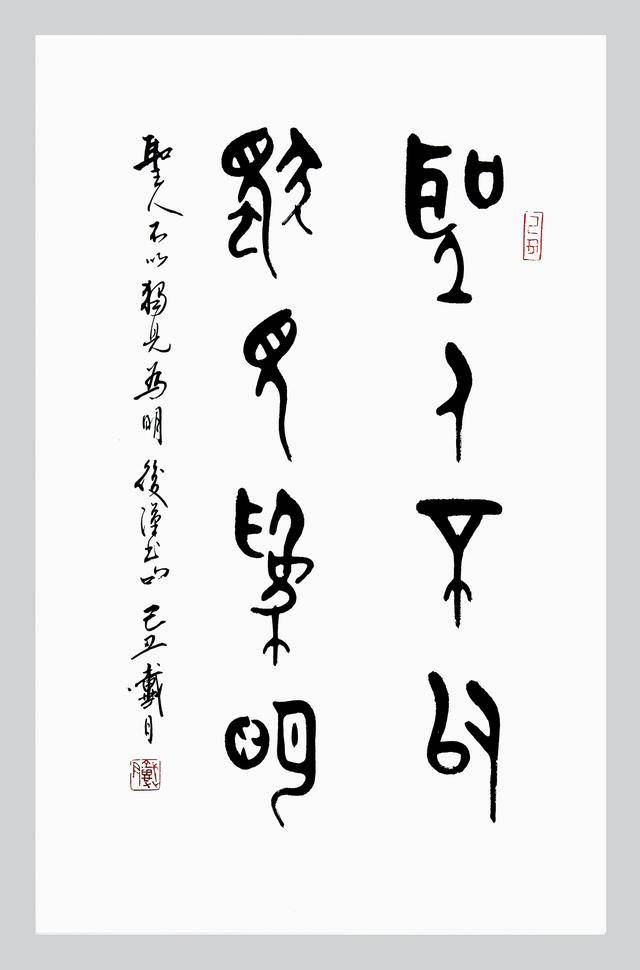 聖人不以
獨見為明
聖人不以獨見為明 後漢書句 己丑 戴月